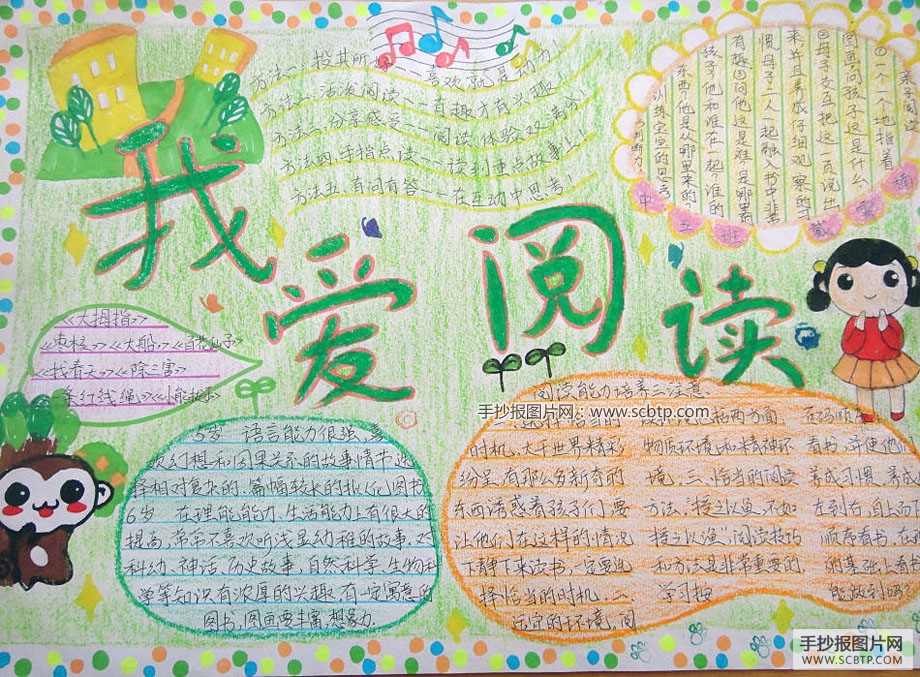 我爱阅读
方法一、投其所好——喜欢就是动力!
方法二、活泼阅读——有趣才有兴趣!
方法三、分享感受——阅读体验双满份!
方法四、手指点读——读到重点故事上!
方法五、有问有答——在互动中思考!
亲子阅读
①一个一个地指着
图画问孩子这是什么
②母子交互把这一页说出
来,并且养成仔细观察的习
惯,母子二人一起融入书中非常
有趣③问他这是谁?是哪里的
孩子?他和谁在一起?谁的
东西?他是从哪里来的?
训练宝宝的思考
与判断力
中五班戴雯婷
《大拇指》
《枣核》《大船》《百花仙子》
《找春天》《除三害》
《牵红线绳》《小能猴子》
5岁 语言能力很强,喜
欢幻想和因果关系的故事情节选
择相对复杂的,篇幅较长的拟人化图书
6岁 在理能能力、生活能力上有很大的
提高,常常不喜欢听浅显幼稚的故事,对
科幻、神话、历史故事,自然科学、生物科
学等知识有浓厚的兴趣,有一定寓意的
图书,图画要丰富,想象力.
阅读能力培养三注意:
一、选择恰当的
时机,大千世界精彩
纷呈,有那么多新奇的
东西诱惑着孩子们,要
让他们在这样的情况
下静下来读书,一定要选
择恰当的时机.二、
适宜的环境,阅
读环境包括两方面,
物质环境和精神环
境.三、恰当的阅读
方法,"授之以鱼,不如
授之以渔",阅读技巧
和方法是非常重要的,
学习按
页码顺
看书,并使他们
养成习惯,养成
左到右,自上而
顺序看书,在
纲基础上看书
能做到吗?
手抄报图片网:www.scbtp.com
手抄报图片网
WWW.SCBTP.COM